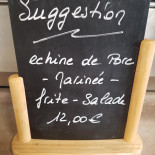 Suggestion
echine de Porc
- Marinée -
frite - Salade
12,00€